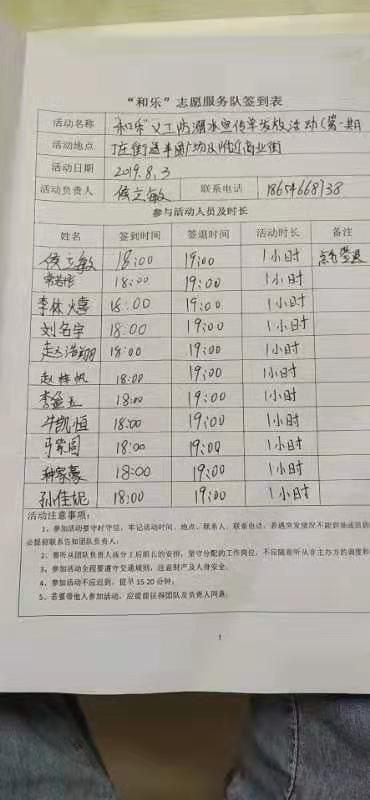 “和乐”志愿服务队签到表
活动名称 “和乐”义工防溺水宣传单发放活动(第一期
活动地点 庄街道丰园广场及附近商业街
活动日期 2019.8.3
活动负责人 侯立敏 联系电话
参与活动人员及时长
姓名 签到时间 签退时间 活动时长 备注
侯立敏 18:00 19:00 1小时
18:00 19:00 1小时
李林熹 18:00 19:00 1小时
刘名宇 18:00 19:00 1小时
赵浩翔 18:00 19:00 1小时
赵梓帆 18:00 19:00 1小时
18:00 19:00 1小时
牛凯恒 18:00 19:00 1小时
18:00 19:00 1小时
种家豪 18:00 19:00 1小时
孙佳妮 18:00 19:00 1小时
活动注意事项:
1、参加活动要守时守信,牢记活动时间、地点、联系人、联系电话,若遇突发情况不能到场或
必提前联系告知团队负责人。
2、要听从团队负责人或分工后组长的安排,坚守分配的工作岗位,不应随意听从非主办方的调度和
3、参加活动全程要遵守交通规则,注意财产及人身安全。
4、参加活动不应迟到,提早 15-20 分钟;
5、若要带他人参加活动,应提前征得团队及负责人同意。
1